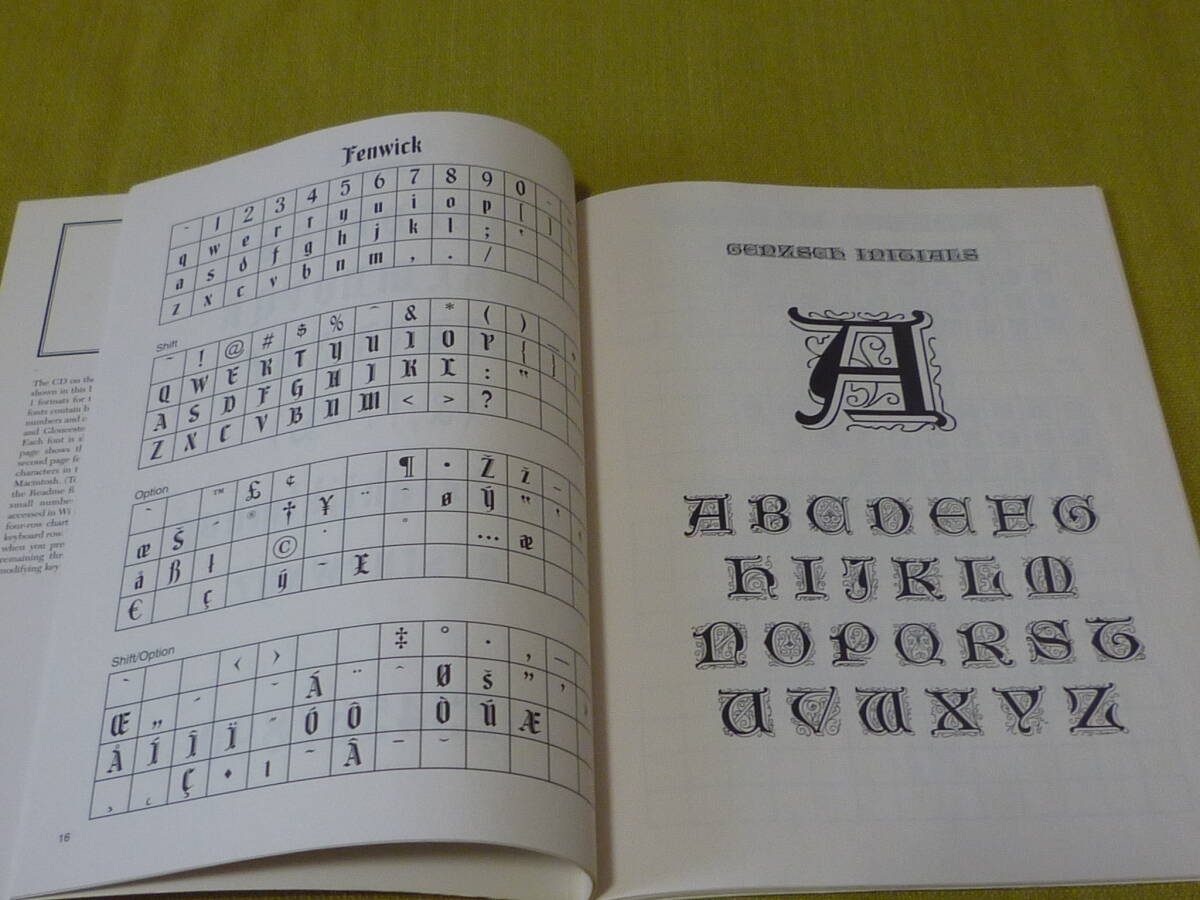 The CD on th
shown in this
formats for
fonts contain b
numbers and c
and Glouceste
Each font is
page shows th
second page fe
characters in
Macintosh. (
the Readme
small numbe
accessed in Wi
four-row chart
keyboard row.
when you pre
remaining thr
modifying key
Fenwick
1 2 3 4 5 6 7 8 9 0 -
q w e r t y u i o p [ ]
a s d f g h j k l ; '
z x c v b n m , . /
Shift
~ ! @ # $ % ˆ & * ( ) _
Q W E R T Y U I O P { }
A S D F G H J K L : "
Z X C V B N M < > ?
Option
` ™ £ ¢ ¶ • Ž ž –
œ Š ´ ® † ¥ ¨ ˆ ø
å ß ł © ˙ ° … æ
€ ç
Shift/Option
` ‹ › ‡ ° · ‚ —
Œ „ ´ ˇ Á ¨ ˆ Ø š ” ’
Å Í Î Ï ˝ Ó Ô Ò Ú Æ
¸ Ç ı ˜ Â ¯ ˘
16
GENZSCH INITIALS
A
A B C D E F G
H I J K L M
N O P Q R S T
U V W X Y Z